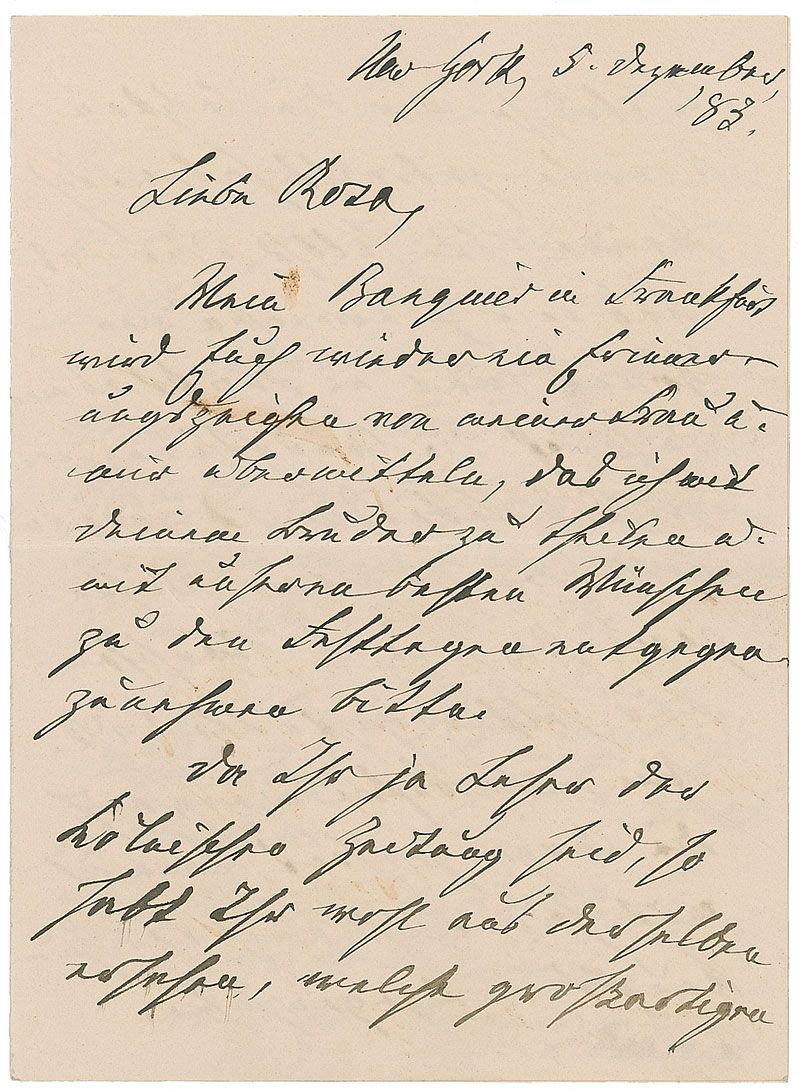 New York, 5. Dezember
'83.
Liebe Rosa,
Mein Banquier in Frankfurt
wird Euch wieder ein Erinner-
ungszeichen von meiner Frau u.
mir übermitteln, das ich mit
deinem Bruder zu theilen u.
mit unseren besten Wünschen
zu den Festtagen entgegen-
zunehmen bitte.
Da Ihr ja Leser der
Kölnischen Zeitung seid, so
habt Ihr wohl aus derselben
ersehen, welche großartigen